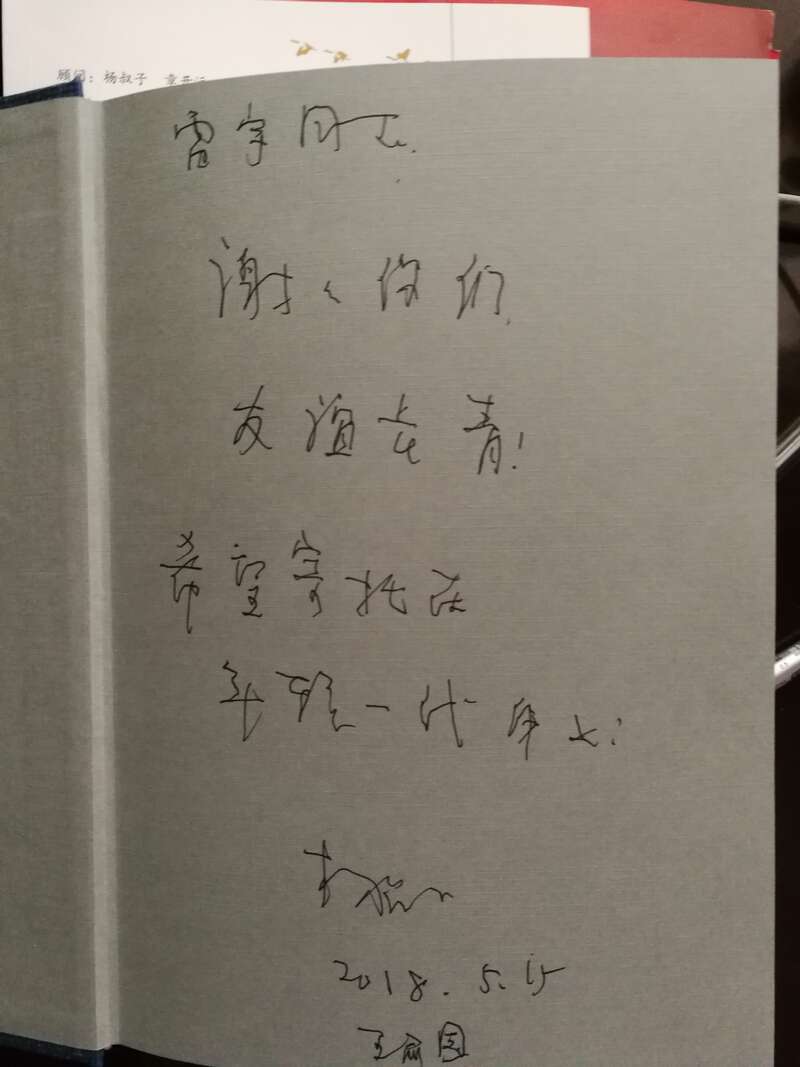 顾问：杨叔子 章开沅
雷宇同志
谢谢你们
友谊长青！
希望寄托在
年轻一代身上！
2018.5.15